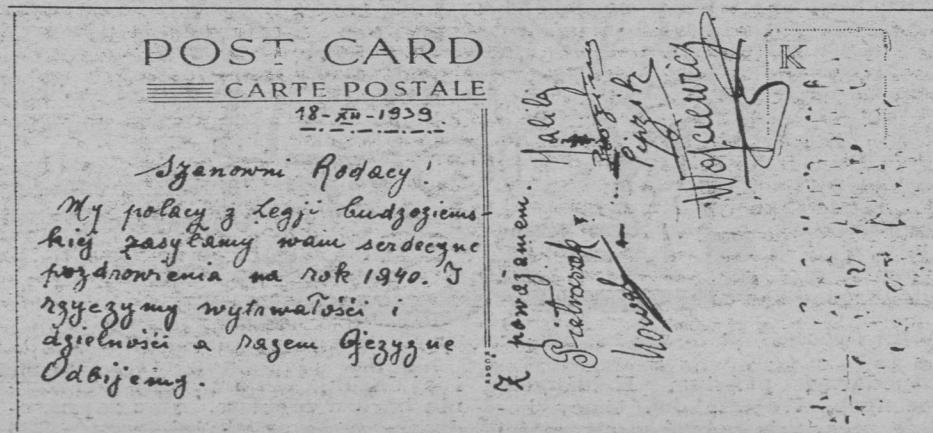 POST CARD
CARTE POSTALE
18-XII-1939
Szanowni Rodacy!
My polacy z Legji budzoziems-
kiej zasyłamy wam serdeczne
pozdrowienia na rok 1940. I
rzyczymy wytrwałośći i
dzielnośći a razem Ojczyzne
Odbijemy.
Z poważaniem.
Pietraszek
Nowak
Halik
Pyzik
Wojcewicz
K